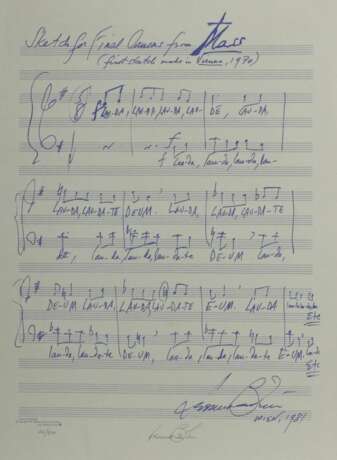 Sketch for Final Chorus from Mass
(first sketch made in Vienna, 1970)
LAU-DA, LAU-DA, LAU-DA, LAU- DE, LAU-DA,
f Lau-da, lau-da, lau-da, lau-
LAU-DA, LAU-DA-TE DE-UM. LAU-DA, LAU-DA, LAU-DA-TE
de, lau-da, lau-da, lau-da-te DE-UM lau-da,
DE-UM LAU-DA, LAU-DA, LAU-DA-TE E-UM. LAU-DA
Etc
lau-da, lau-da-te DE-UM, lau-da, lau-da, lau-da-te E-UM,
Etc
WIEN, 1984